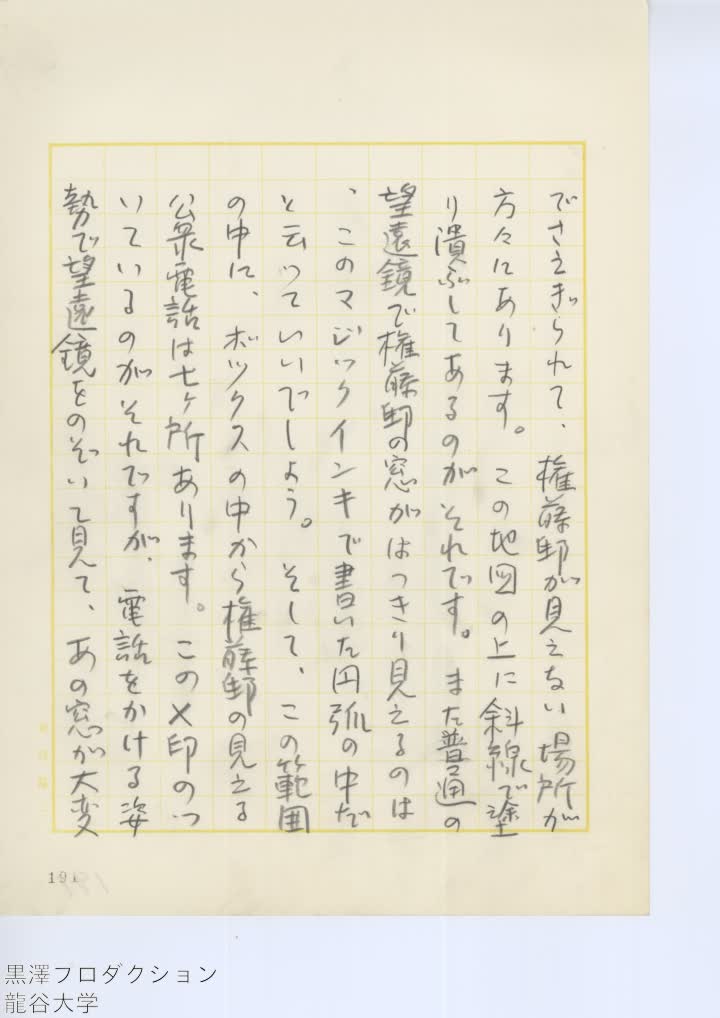 でさえぎられて、権藤邸が見えない場所が
方々にあります。この地図の上に斜線で塗
り潰ぶしてあるのがそれです。また普通の
望遠鏡で権藤邸の窓がはっきり見えるのは
、このマジックインキで書いた円弧の中だ
と云っていいでしょう。そして、この範囲
の中に、ボックスの中から権藤邸の見える
公衆電話は七ヶ所あります。この×印のつ
いているのがそれですが、電話をかける姿
勢で望遠鏡をのぞいて見て、あの窓が大変
191
黒澤プロダクション
龍谷大学